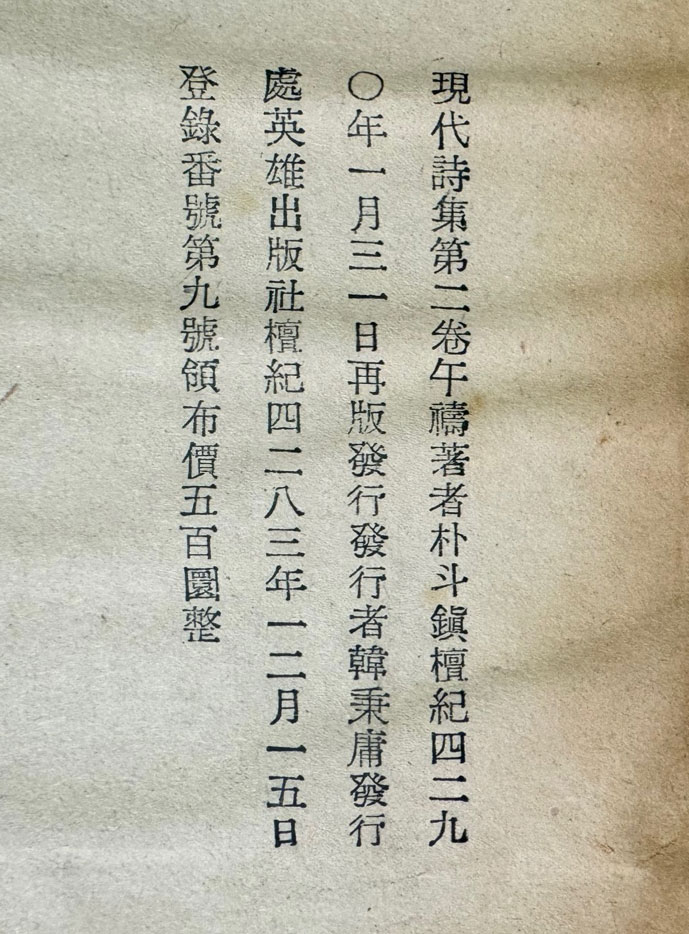 現代詩集第二卷午禱著者朴斗鎭檀紀四二九
〇年一月三一日再版發行發行者韓秉庸發行
處英雄出版社檀紀四二八三年一二月一五日
登錄番號第九號頒布價五百圜整